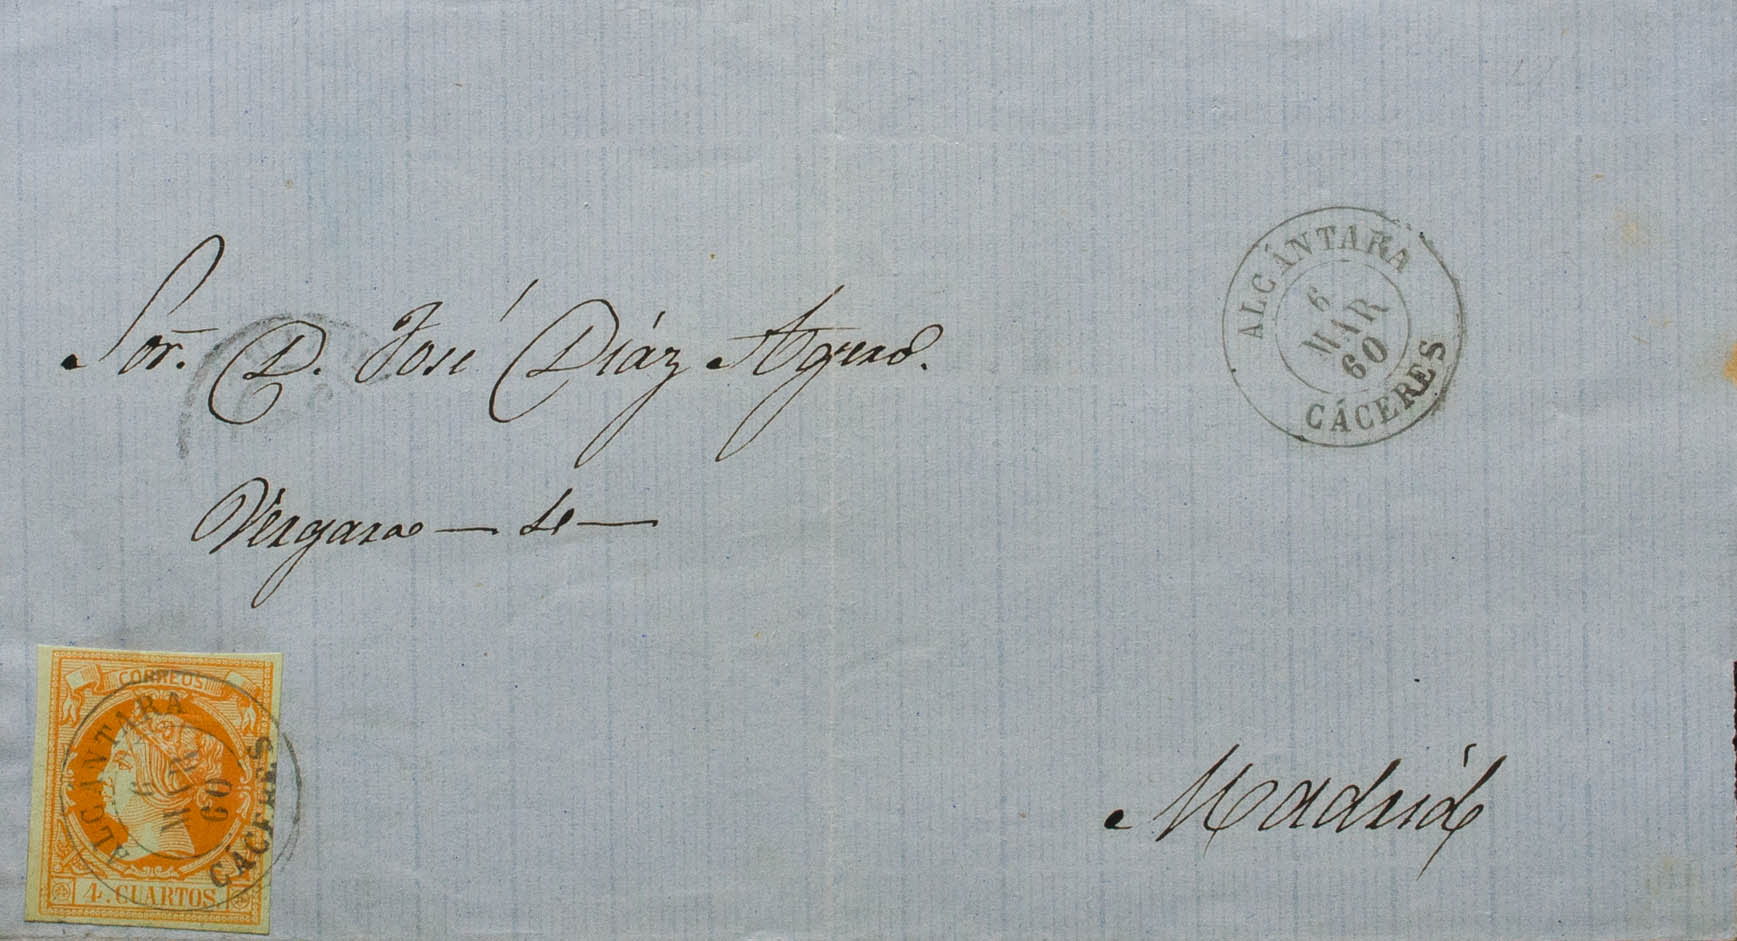 ALCÁNTARA
6
MAR
60
CÁCERES
Sor. D. José Díaz Agero.
Vergara — 4 —
CORREOS
ALCÁNTARA
6
MAR
60
CÁCERES
4. CUARTOS.
Madrid